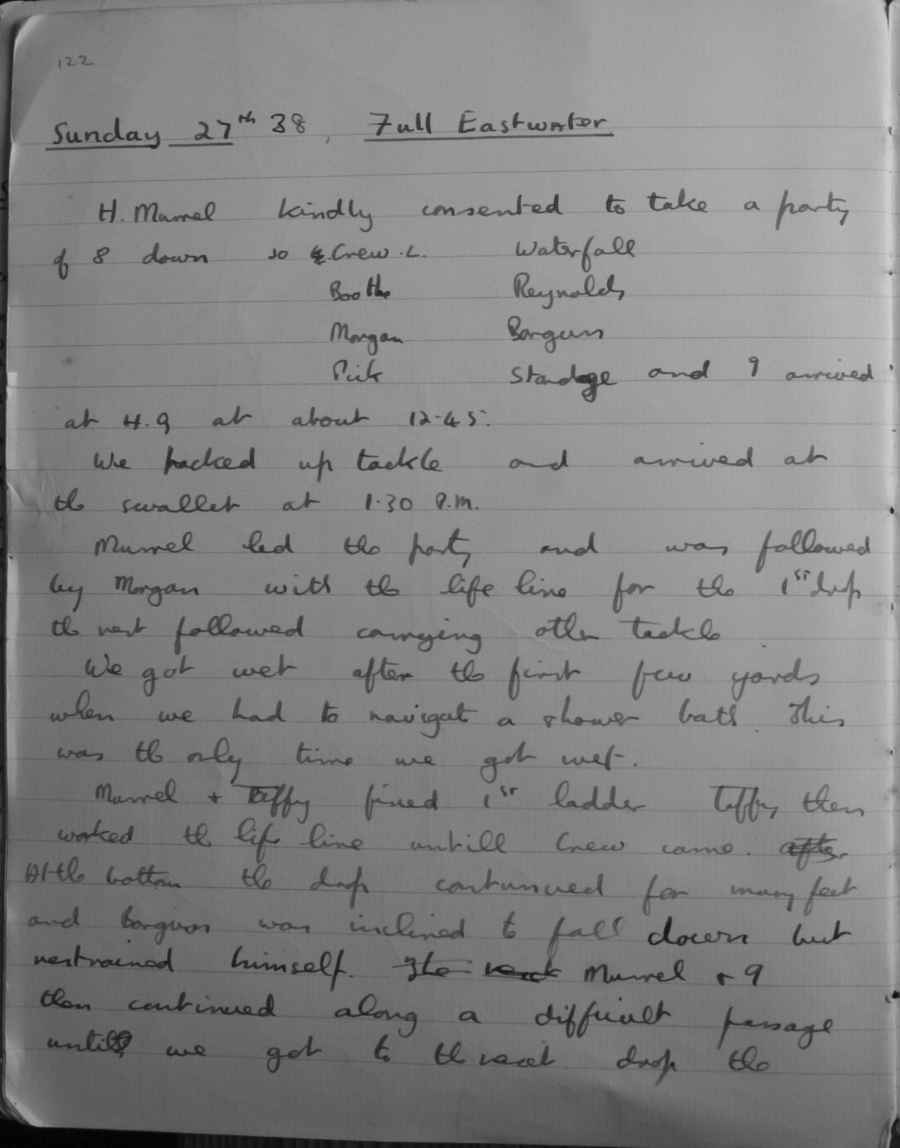 122
Sunday 27th 38, Full Eastwater
H. Murrel kindly consented to take a party
of 8 down so Crew. L. Waterfall
Booth Reynolds
Morgan Borguss
Pick Standage and I arrived
at H.Q at about 12.45.
We packed up tackle and arrived at
the swallet at 1.30 P.M.
Murrel led the party and was followed
by Morgan with the life line for the 1st drop
the rest followed carrying other tackle
We got wet after the first few yards
when we had to navigate a shower bath. This
was the only time we got wet.
Murrel + Taffy fixed 1st ladder Taffy then
worked the life line untill Crew came. after
At the bottom the drop continued for many feet
and was inclined to fall down but
restrained himself. The Murrel + I
then continued along a difficult passage
untill we got to the next drop the